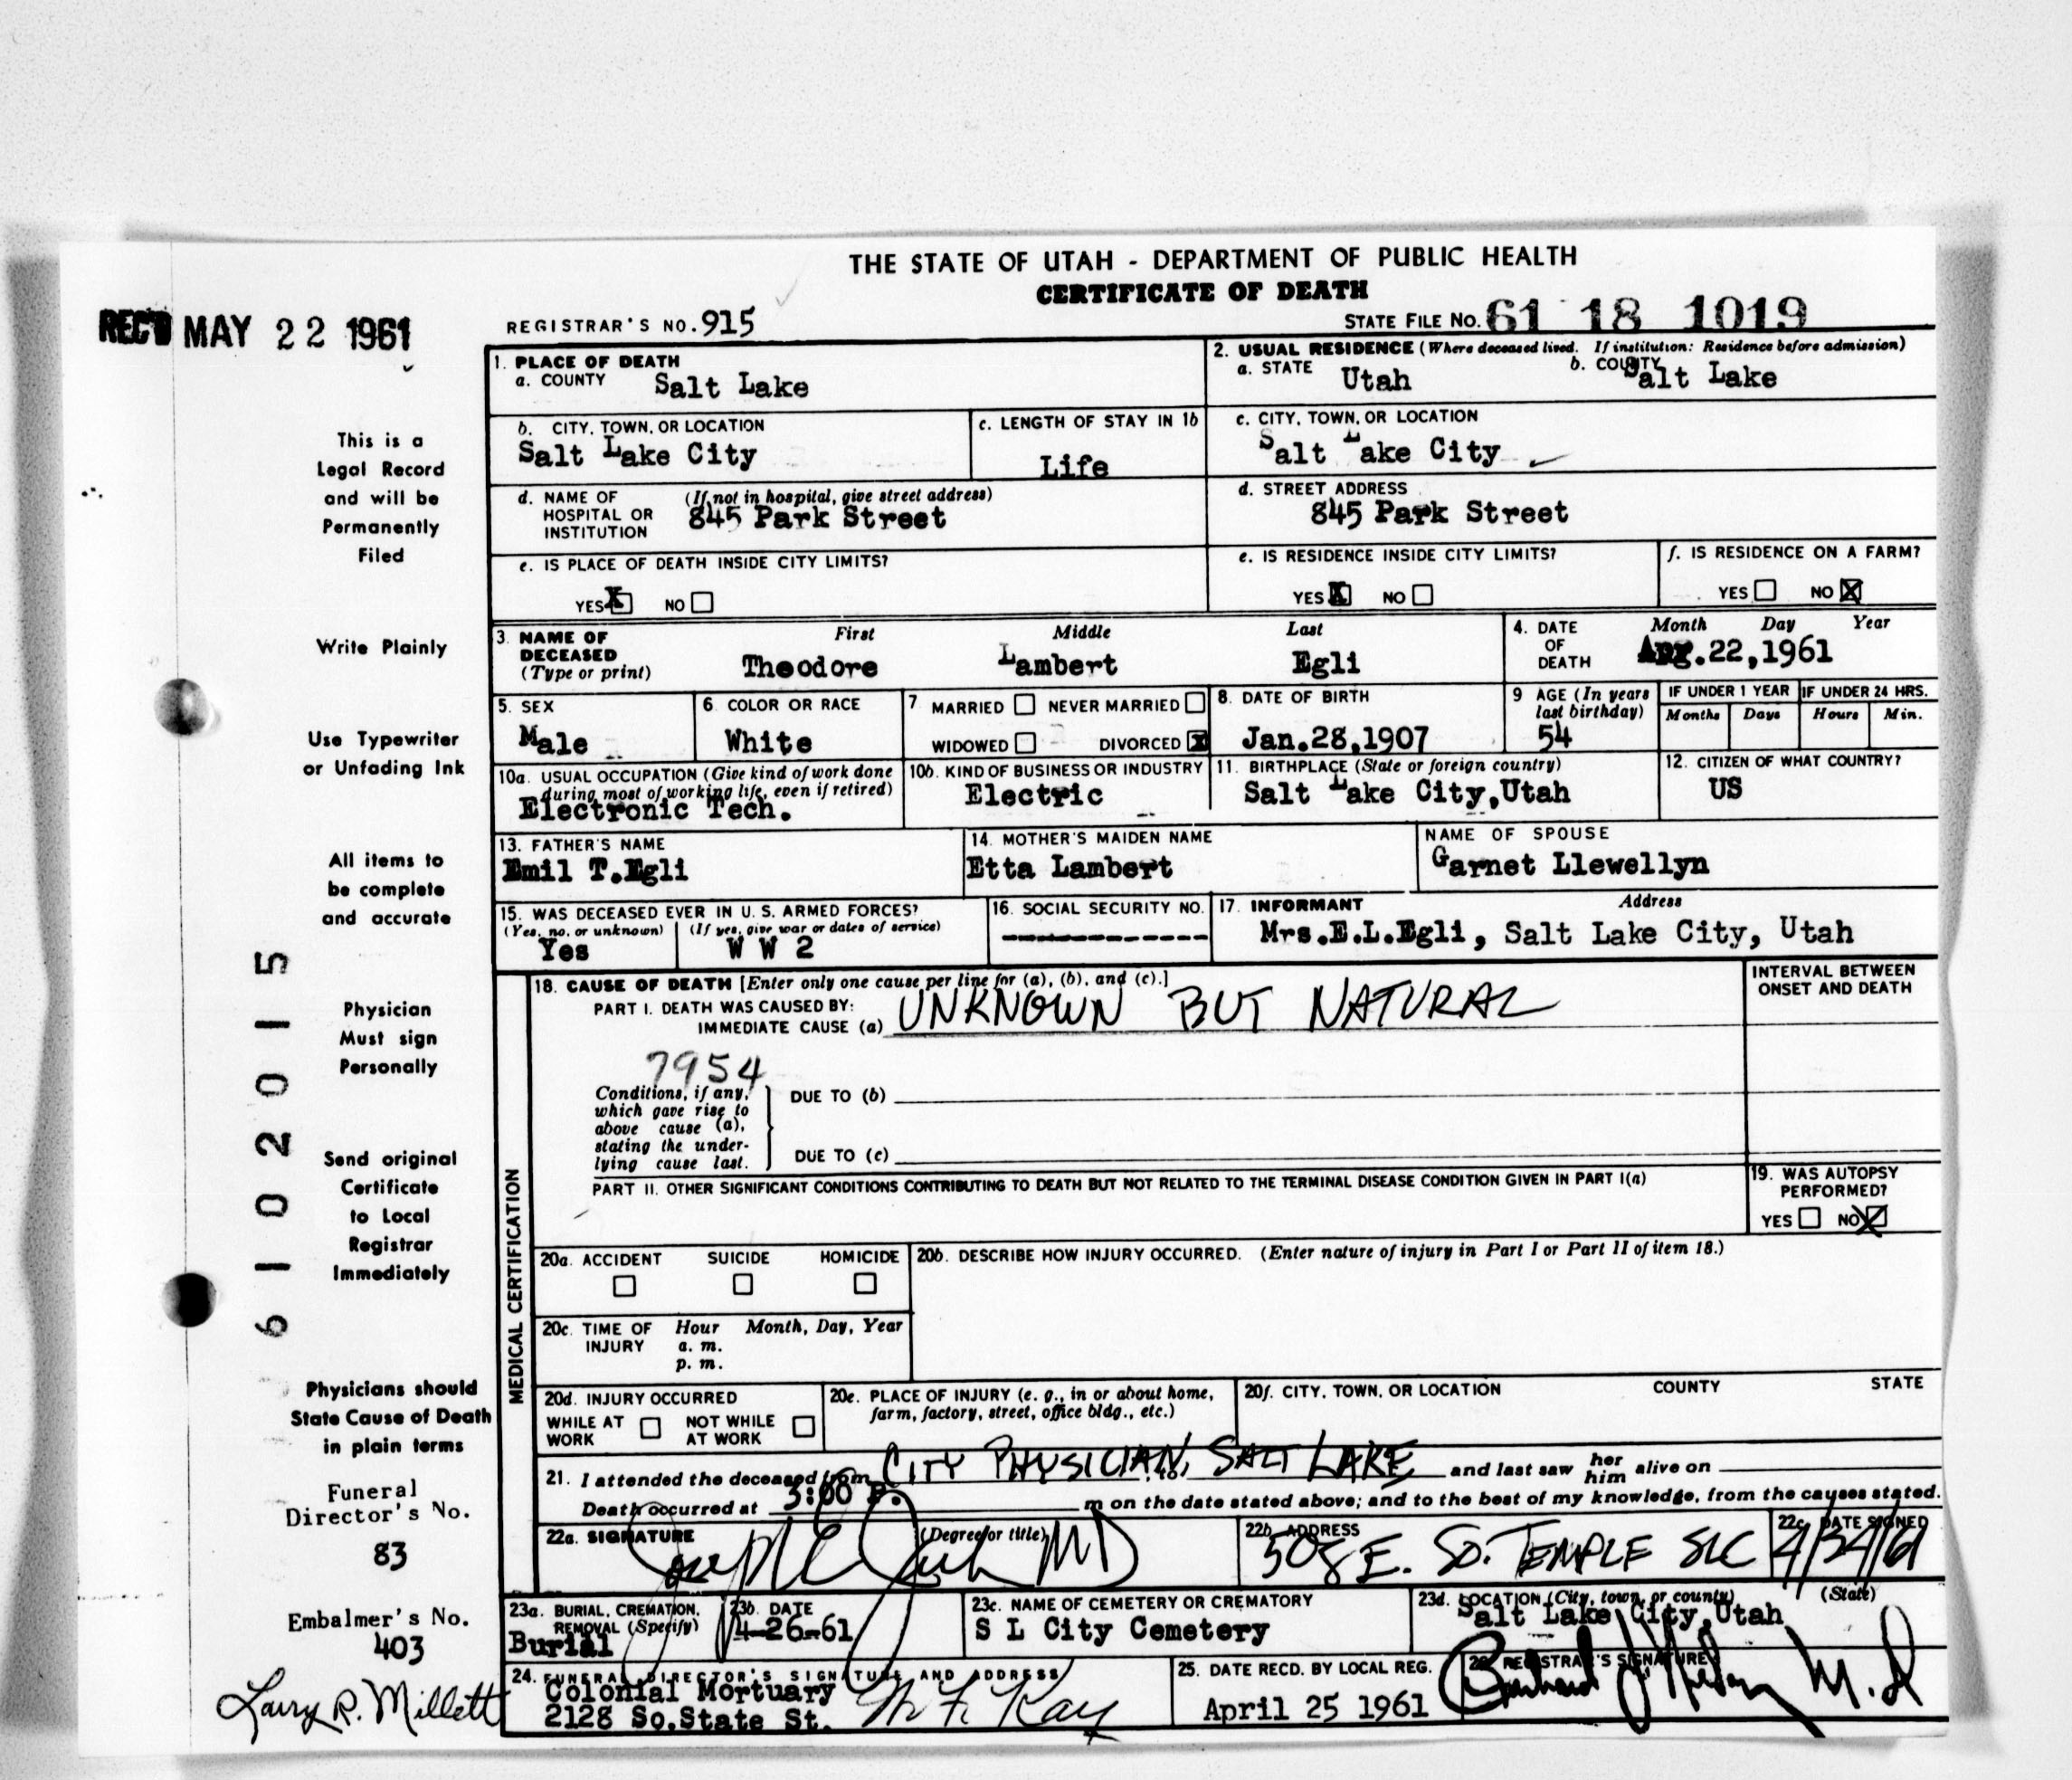 THE STATE OF UTAH - DEPARTMENT OF PUBLIC HEALTH
CERTIFICATE OF DEATH
REC'D MAY 22 1961
REGISTRAR'S NO. 915
STATE FILE No. 61 18 1019
1. PLACE OF DEATH
a. COUNTY Salt Lake
2. USUAL RESIDENCE (Where deceased lived. If institution: Residence before admission)
a. STATE Utah b. COUNTY Salt Lake
b. CITY, TOWN, OR LOCATION
Salt Lake City
c. LENGTH OF STAY IN 1b
Life
c. CITY, TOWN, OR LOCATION
Salt Lake City
d. NAME OF HOSPITAL OR INSTITUTION (If not in hospital, give street address)
845 Park Street
d. STREET ADDRESS
845 Park Street
e. IS PLACE OF DEATH INSIDE CITY LIMITS?
YES X NO
e. IS RESIDENCE INSIDE CITY LIMITS?
YES X NO
f. IS RESIDENCE ON A FARM?
YES NO X
3. NAME OF DECEASED (Type or print)
First Middle Last
Theodore Lambert Egli
4. DATE OF DEATH Month Day Year
Apr.22,1961
5. SEX
Male
6. COLOR OR RACE
White
7 MARRIED NEVER MARRIED
WIDOWED DIVORCED X
8. DATE OF BIRTH
Jan.28,1907
9 AGE (In years last birthday)
54
IF UNDER 1 YEAR IF UNDER 24 HRS.
Months Days Hours Min.
10a. USUAL OCCUPATION (Give kind of work done during most of working life, even if retired)
Electronic Tech.
10b. KIND OF BUSINESS OR INDUSTRY
Electric
11. BIRTHPLACE (State or foreign country)
Salt Lake City,Utah
12. CITIZEN OF WHAT COUNTRY?
US
13. FATHER'S NAME
Emil T.Egli
14. MOTHER'S MAIDEN NAME
Etta Lambert
NAME OF SPOUSE
Garnet Llewellyn
15. WAS DECEASED EVER IN U. S. ARMED FORCES?
(Yes, no, or unknown) (If yes, give war or dates of service)
Yes W W 2
16. SOCIAL SECURITY NO.
-------------
17. INFORMANT Address
Mrs.E.L.Egli, Salt Lake City, Utah
MEDICAL CERTIFICATION
18. CAUSE OF DEATH [Enter only one cause per line for (a), (b), and (c).]
PART I. DEATH WAS CAUSED BY:
IMMEDIATE CAUSE (a) UNKNOWN BUT NATURAL
INTERVAL BETWEEN ONSET AND DEATH
7954
Conditions, if any, which gave rise to above cause (a), stating the underlying cause last.
DUE TO (b)
DUE TO (c)
PART II. OTHER SIGNIFICANT CONDITIONS CONTRIBUTING TO DEATH BUT NOT RELATED TO THE TERMINAL DISEASE CONDITION GIVEN IN PART I(a)
19. WAS AUTOPSY PERFORMED?
YES NO X
20a. ACCIDENT SUICIDE HOMICIDE
20b. DESCRIBE HOW INJURY OCCURRED. (Enter nature of injury in Part I or Part II of item 18.)
20c. TIME OF INJURY Hour Month, Day, Year
a. m.
p. m.
20d. INJURY OCCURRED
WHILE AT WORK NOT WHILE AT WORK
20e. PLACE OF INJURY (e. g., in or about home, farm, factory, street, office bldg., etc.)
20f. CITY, TOWN, OR LOCATION COUNTY STATE
21. I attended the deceased from CITY PHYSICIAN, SALT LAKE and last saw her him alive on
Death occurred at 3:00 P. m on the date stated above; and to the best of my knowledge, from the causes stated.
22a. SIGNATURE (Degree or title) MD
22b. ADDRESS
508 E. SO. TEMPLE SLC
22c. DATE SIGNED
4/24/61
23a. BURIAL, CREMATION, REMOVAL (Specify)
Burial
23b. DATE
4-26-61
23c. NAME OF CEMETERY OR CREMATORY
S L City Cemetery
23d. LOCATION (City, town, or county) (State)
Salt Lake City,Utah
24. FUNERAL DIRECTOR'S SIGNATURE AND ADDRESS
Colonial Mortuary
2128 So.State St.
25. DATE RECD. BY LOCAL REG.
April 25 1961
26. REGISTRAR'S SIGNATURE
M.D
This is a
Legal Record
and will be
Permanently
Filed
Write Plainly
Use Typewriter
or Unfading Ink
All items to
be complete
and accurate
Physician
Must sign
Personally
Send original
Certificate
to Local
Registrar
Immediately
Physicians should
State Cause of Death
in plain terms
Funeral
Director's No.
83
Embalmer's No.
403
Larry R. Millett
6102015